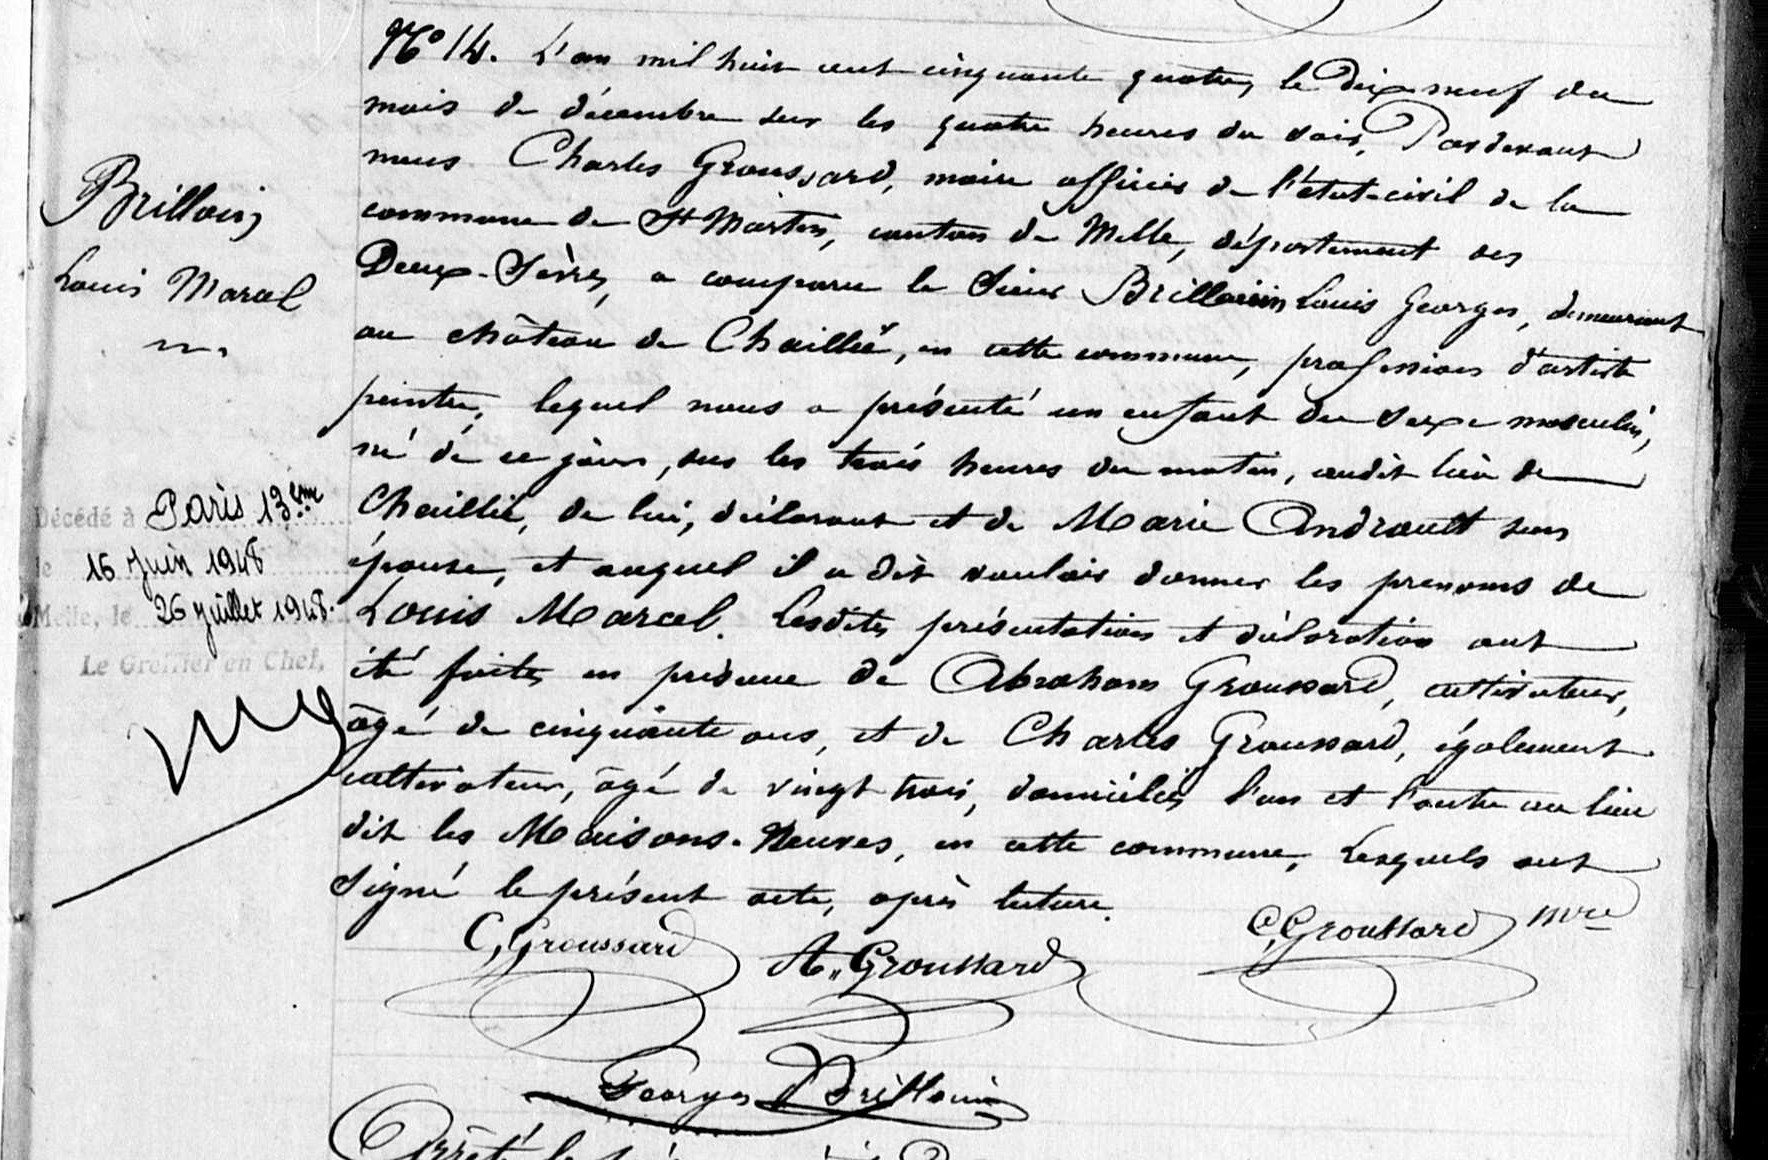 N° 14. L'an mil huit cent cinquante quatre, le Dix neuf du
mois de décembre sur les quatre heures du soir, Pardevant
nous Charles Groussard, maire officier de l'état-civil de la
commune de St Martin, canton de Melle, département des
Deux-Sèvres, a comparu le Sieur Brillouin Louis Georges, demeurant
au château de Chaillié, en cette commune, profession d'artiste
peintre, lequel nous a présenté un enfant du sexe masculin,
né de ce jour, sur les trois heures du matin, audit lieu de
Chaillié, de lui, déclarant et de Marie Andrault son
épouse, et auquel il a dit vouloir donner les prénoms de
Louis Marcel. Lesdites présentation et déclaration ont
été faites en présence de Abraham Groussard, cultivateur,
âgé de cinquante ans, et de Charles Groussard, également
cultivateur, âgé de vingt trois, domiciliés l'un et l'autre au lieu
dit les Maisons-Neuves, en cette commune, Lesquels ont
signé le présent acte, après lecture.
C. Groussard A. Groussard C. Groussard mre
Georges Brillouin
Brillouin
Louis Marcel
Décédé à Paris 13ème
le 16 Juin 1948
Melle, le 26 juillet 1948.
Le Greffier en Chef,
Arrêté le